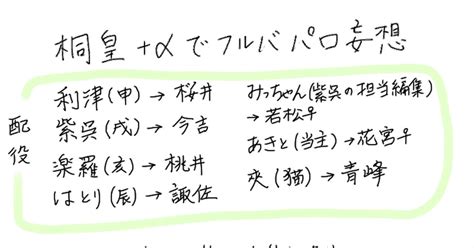 桐皇+αでフルバパロ妄想
配役
利津(申)→桜井
紫呉(戌)→今吉
楽羅(亥)→桃井
はとり(辰)→諏佐
みっちゃん(紫呉の担当編集)
→若松♀
あきと(当主)→花宮♀
夾(猫)→青峰